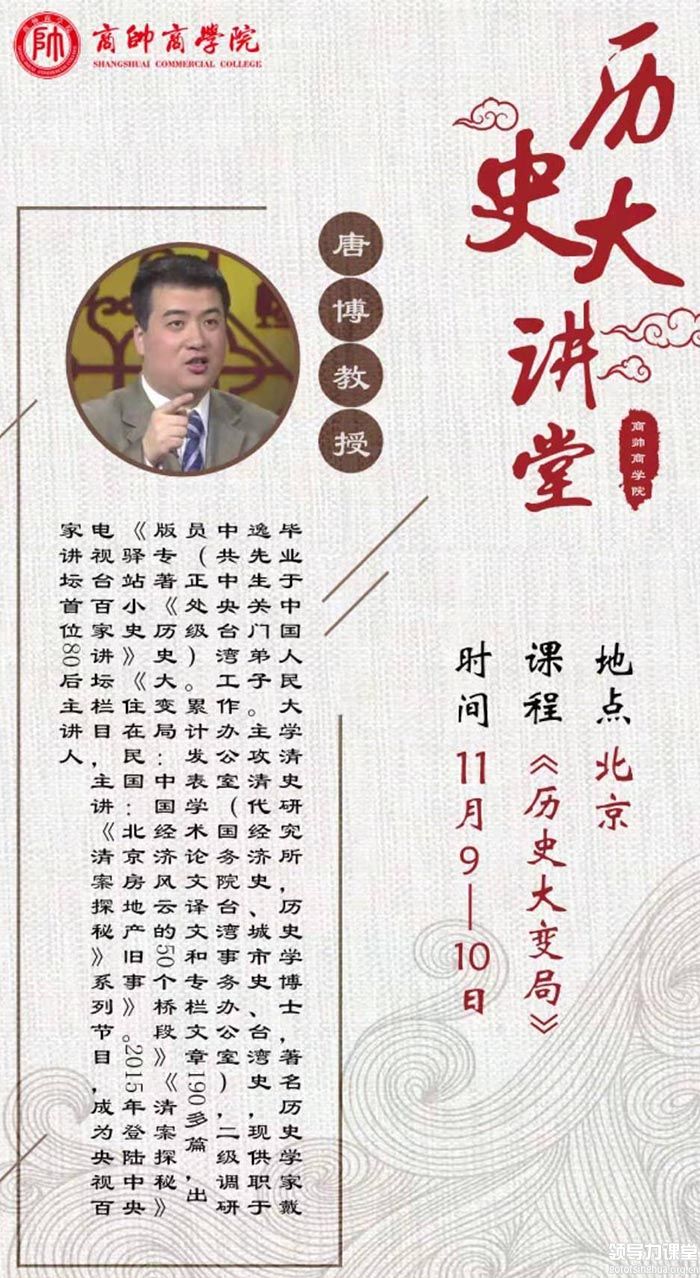 帥
商帥商學院
SHANGSHUAI COMMERCIAL COLLEGE
历史大讲堂
商帅商学院
唐博教授
地点 北京
课程《历史大变局》
时间 11月9—10日
毕业于中国人民大学清史研究所，历史学博士，著名历史学家戴
逸先生关门弟子。主攻清代经济史、城市史、台湾史，现供职于
中共中央台湾工作办公室（国务院台湾事务办公室），二级调研
员（正处级）。累计发表学术论文译文和专栏文章190多篇，出
版专著《历史大变局：中国经济风云的50个桥段》《清案探秘》
《驿站小史》《住在民国：北京房地产旧事》。2015年登陆中央
电视台百家讲坛栏目，主讲《清案探秘》系列节目，成为央视百
家讲坛首位80后主讲人。
领导力课堂
gototsinghua.org.cn